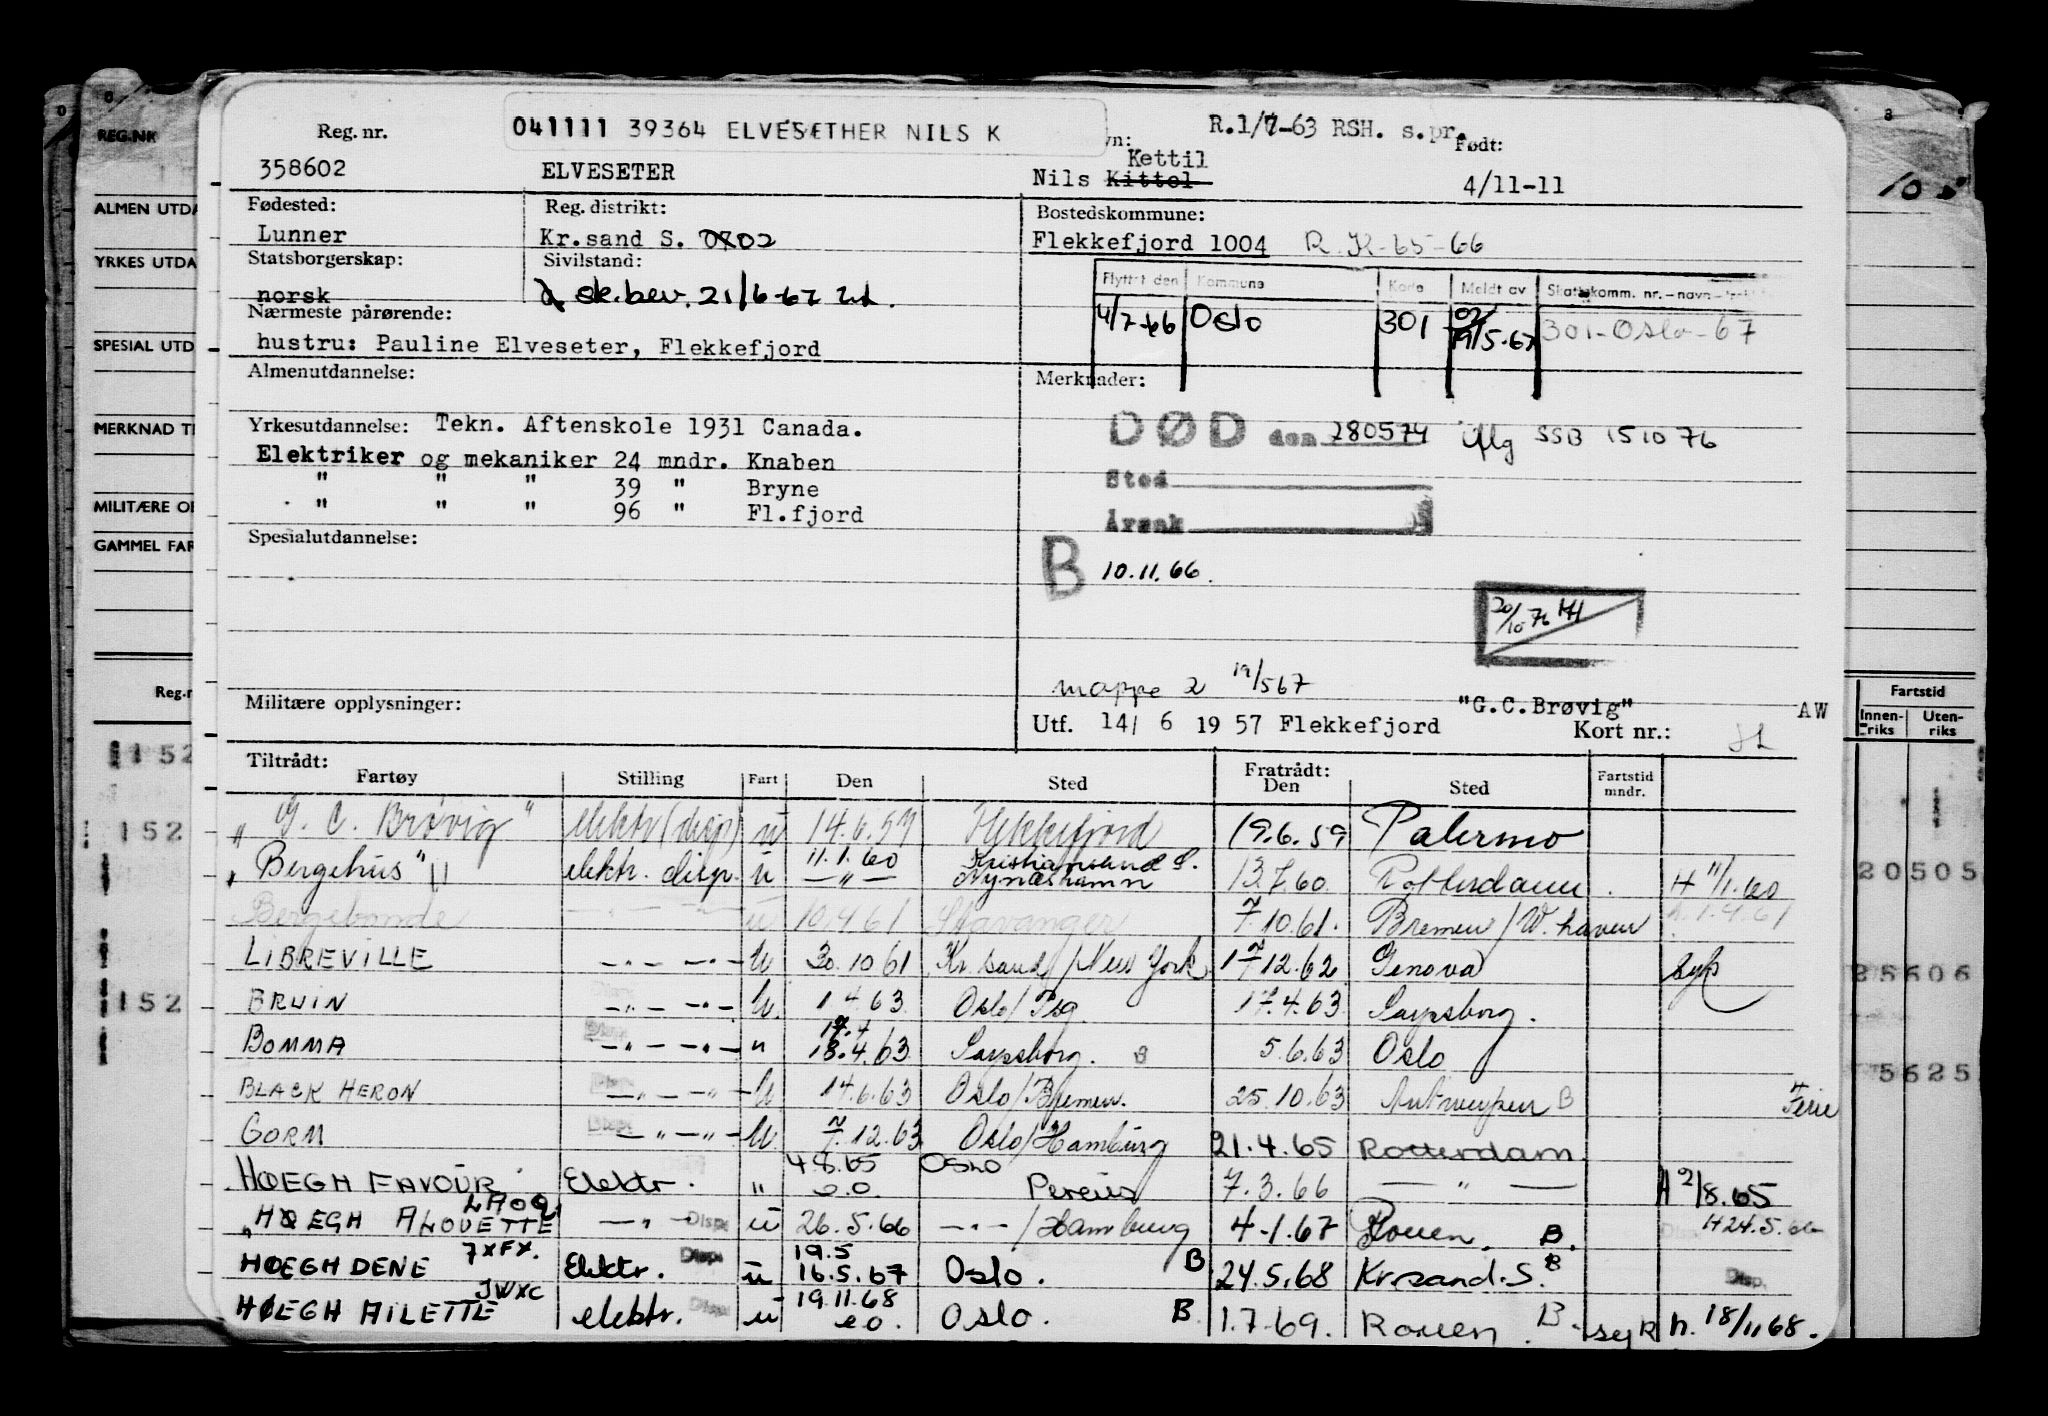 041111 39364 ELVESÆTHER NILS K
R.1/7-63 RSH. s.pr.
Reg. nr.
Født:
358602 ELVESETER Nils Kittel Kettil 4/11-11
Fødested: Reg. distrikt: Bostedskommune:
Lunner Kr.sand S. 0802 Flekkefjord 1004 R. K-65-66
Statsborgerskap: Sivilstand:
norsk sk.bev. 21/6-67
Flyttet den Kommune Kode Meldt av Skattekomm. nr. - navn -
4/7-66 Oslo 301 19/5-67 301-Oslo-67
Nærmeste pårørende:
hustru: Pauline Elveseter, Flekkefjord
Almenutdannelse: Merknader:
Yrkesutdannelse: Tekn. Aftenskole 1931 Canada.
DØD den 280574 iflg SSB 151076
Elektriker og mekaniker 24 mndr. Knaben
" " " 39 " Bryne
Sted
" " " 96 " Fl.fjord
Årsak
Spesialutdannelse:
B 10.11.66.
20/10 76 HH
mappe 2 19/567
Militære opplysninger:
"G.C.Brøvig" AW
Utf. 14/ 6 1957 Flekkefjord Kort nr.:
Tiltrådt: Fratrådt:
Fartøy Stilling Fart Den Sted Den Sted Fartstid mndr.
"G. C. Brøvig" elektr (disp) u 14.6.57 Flekkefjord 19.6.59 Palermo
"Bergehus" elektr. disp. u 11.1.60 — " — Kristiansand S. Nynäshamn 13.7.60 Rotterdam. H 11/1.60
Bergebonde — " — u 10.4.61 Stavanger 7.10.61. Bremen/W.haven h. 1.4.61
LIBREVILLE — " — — " — U 30.10 61 Kr.sand/New York 17 12.62 Genova syk
BRUIN — " — — " — U. 1 4 63 Oslo/Psg. 17.4.63 Sarpsborg.
BOMMA — " — — " — " 17.4 18.4.63 Sarpsborg. B 5.6.63 Oslo
BLACK HERON — " — — " — U 14.6.63 Oslo/Bremen. 25.10.63 Antwerpen B Ferie
GORM Disp — " — — " — U 7.12.63 Oslo/Hamburg 21.4.65 Rotterdam
HØEGH FAVOUR Elektr. " 4.8.65 e.o. OSLO Pereus 7.3.66 — " — H 2/8.65
"HØEGH ALOUETTE LAOQ — " — Disp u 26.5.66 — " — /Hamburg 4-1.67 Rouen. B. H 24.5.66
HØEGH DENE 7XFX. Elektr. Disp u 19.5 16.5.67 Oslo. B 24.5.68 Kr.sand.S. B Disp.
HØEGH AILETTE JWXC elektr. Disp u 19.11.68 e.o. Oslo. B 1.7.69. Rouen. B. syk h. 18/11 68.
REG.NR
ALMEN UTDA
YRKES UTDA
SPESIAL UTD
MERKNAD TI
MILITÆRE OP
GAMMEL FAR
Reg.n
152
152
152
Fartstid
Innen-riks Uten-riks
20505
25606
5625